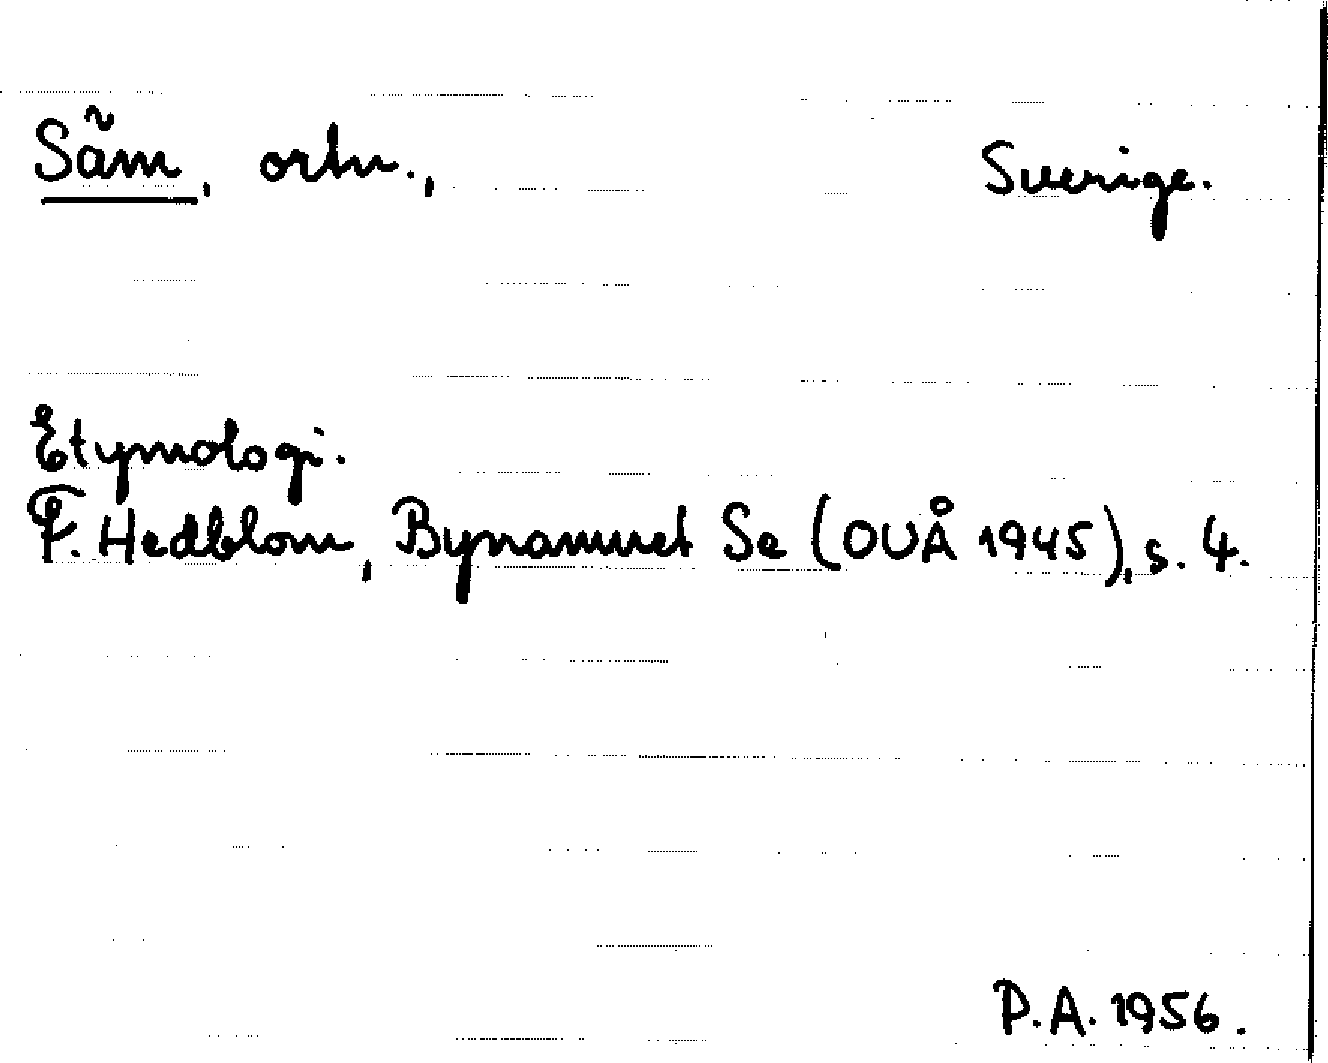 Sãm, ortn., Sverige.
Etymologi.
F. Hedblom, Bynamnet Se (OUÅ 1945), s. 4.
P.A. 1956.